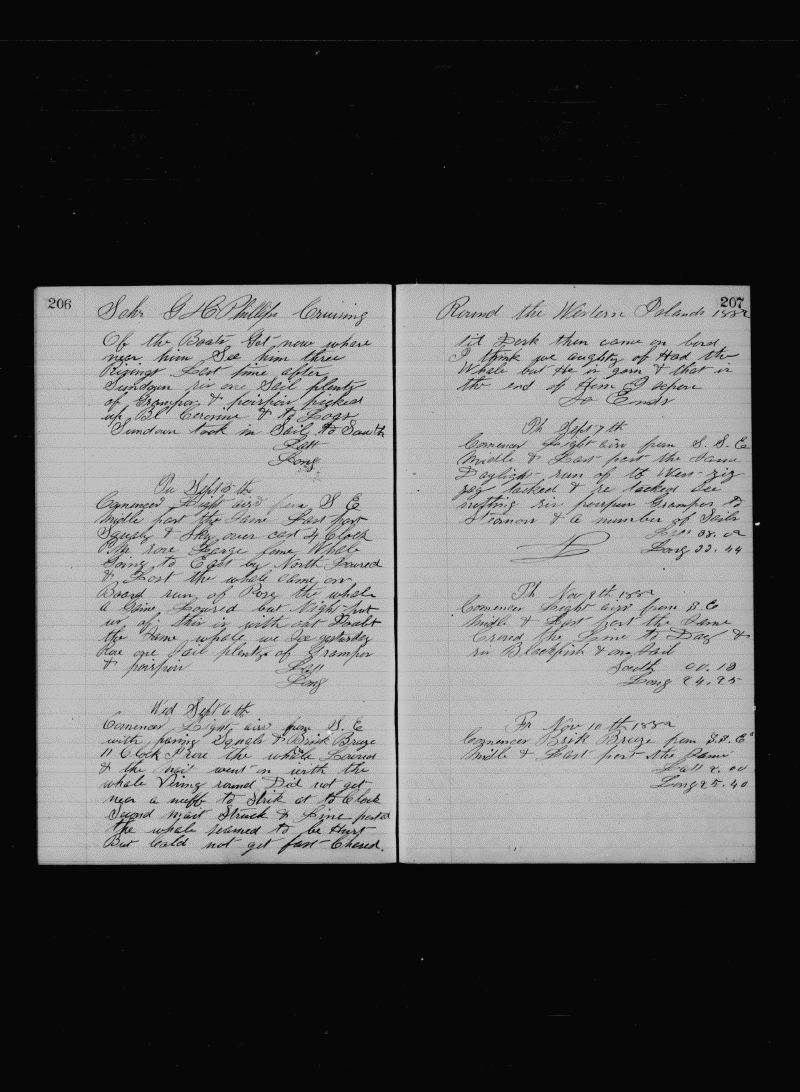 206
Schr G H C Phillips Cruising
Of the Boats Got now where
near him See him three
Risings Last time after
Sundown sir one Sail plenty
of Grampus & poirpion picked
up Bl Coronue & to Boats
Sundown took in Sail to South
Latt
Long
Tu Sept 5th
Comences Light airs from S E
Midle part the Same Last part
Squaly & Sky over cast 4 Clock
P.M. rose Large Lone Whale
Going to East by North Loured
& Lost the whale Came on
Board run of Rose the whale
a Gaine Loured but Night put
us of this is with out Doubt
the Same whale we See yesterday
one Sail plenty of Grampus
& poirpion Latt
Long
Wed Sept 6th
Comences Light airs from S. E
with pasing Squals & Brisk Breze
11 Clock A rose the whale Loured
& the mait went on with the
whale round Did not get
near a nuff to Strik at to Clock
Second mait Struck & Line parted
the whale seamed to be Hurt
But Could not get fast Chased
207
Round the Western Islands 1882
til Dark then came on bord
I think we aughty of Had the
Whale but He is gorn & that is
the end of Him I sopose
So Ends
Th Sept 7th
Comences Light airs from S. S. E
Midle & Last part the Same
Daylight run of to West zig
zag tacked & re tacked See
nothing sir porpus Grampus &
& a number of Sails
Latt 38.02
Long 33.44
Th Nov 9th 1882
Comences Light airs from S. E
Midle & Last part the Same
Crosed the Line to Day &
sir Blackfish & one Sail
South 00.18
Long 24.25
Fr Nov 10th 1882
Comences Brisk Breze from S. S. E
Midle & Last part the Same
Latt 2.00
Long 25.40